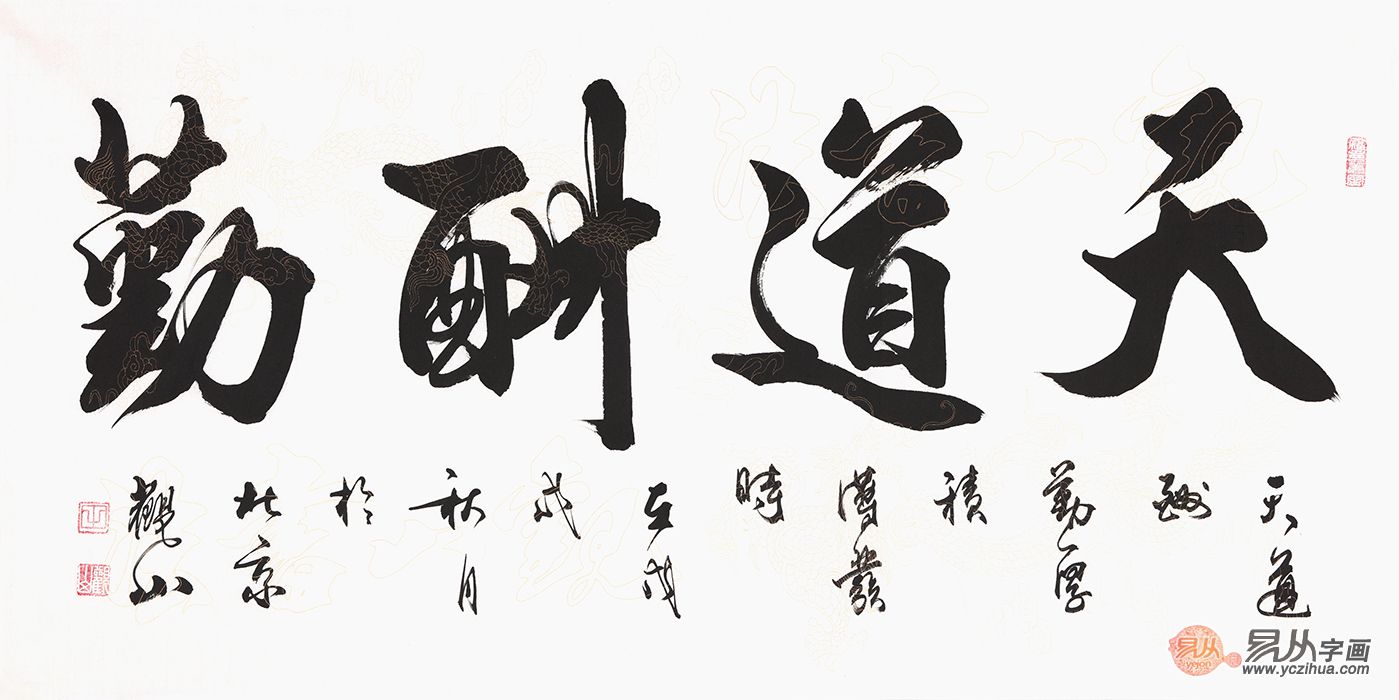 天道酬勤
天道
酬
勤厚
積
薄發
時
在戊
戌
秋月
於
北京
觀山
易从字画
www.yczihua.com